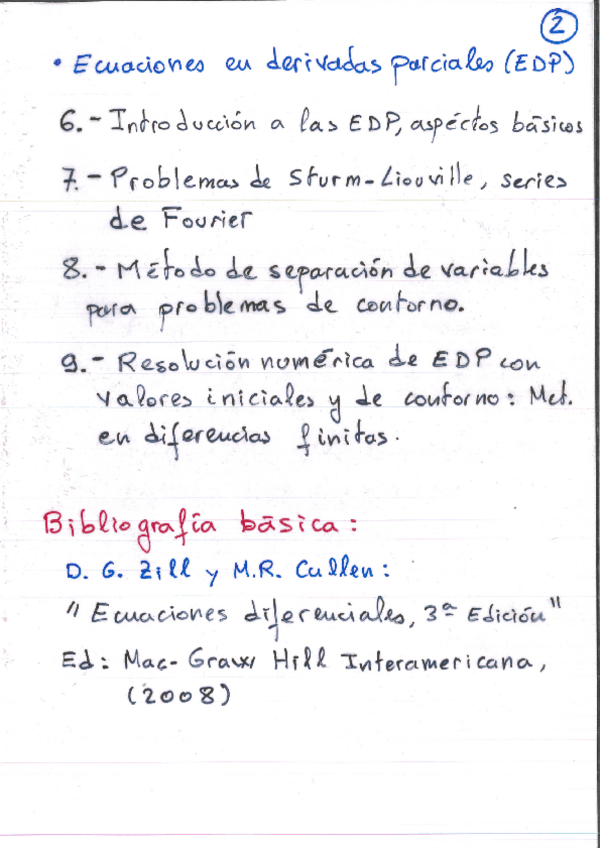 2
• Ecuaciones en derivadas parciales (EDP)
6.- Introducción a las EDP, aspéctos básicos
7.- Problemas de Sturm-Liouville, series
de Fourier
8.- Método de separación de variables
para problemas de contorno.
9.- Resolución numérica de EDP con
valores iniciales y de contorno: Met.
en diferencias finitas.
Bibliografía básica:
D. G. Zill y M.R. Cullen:
"Ecuaciones diferenciales, 3ª Edición"
Ed: Mac-Graw Hill Interamericana,
(2008)